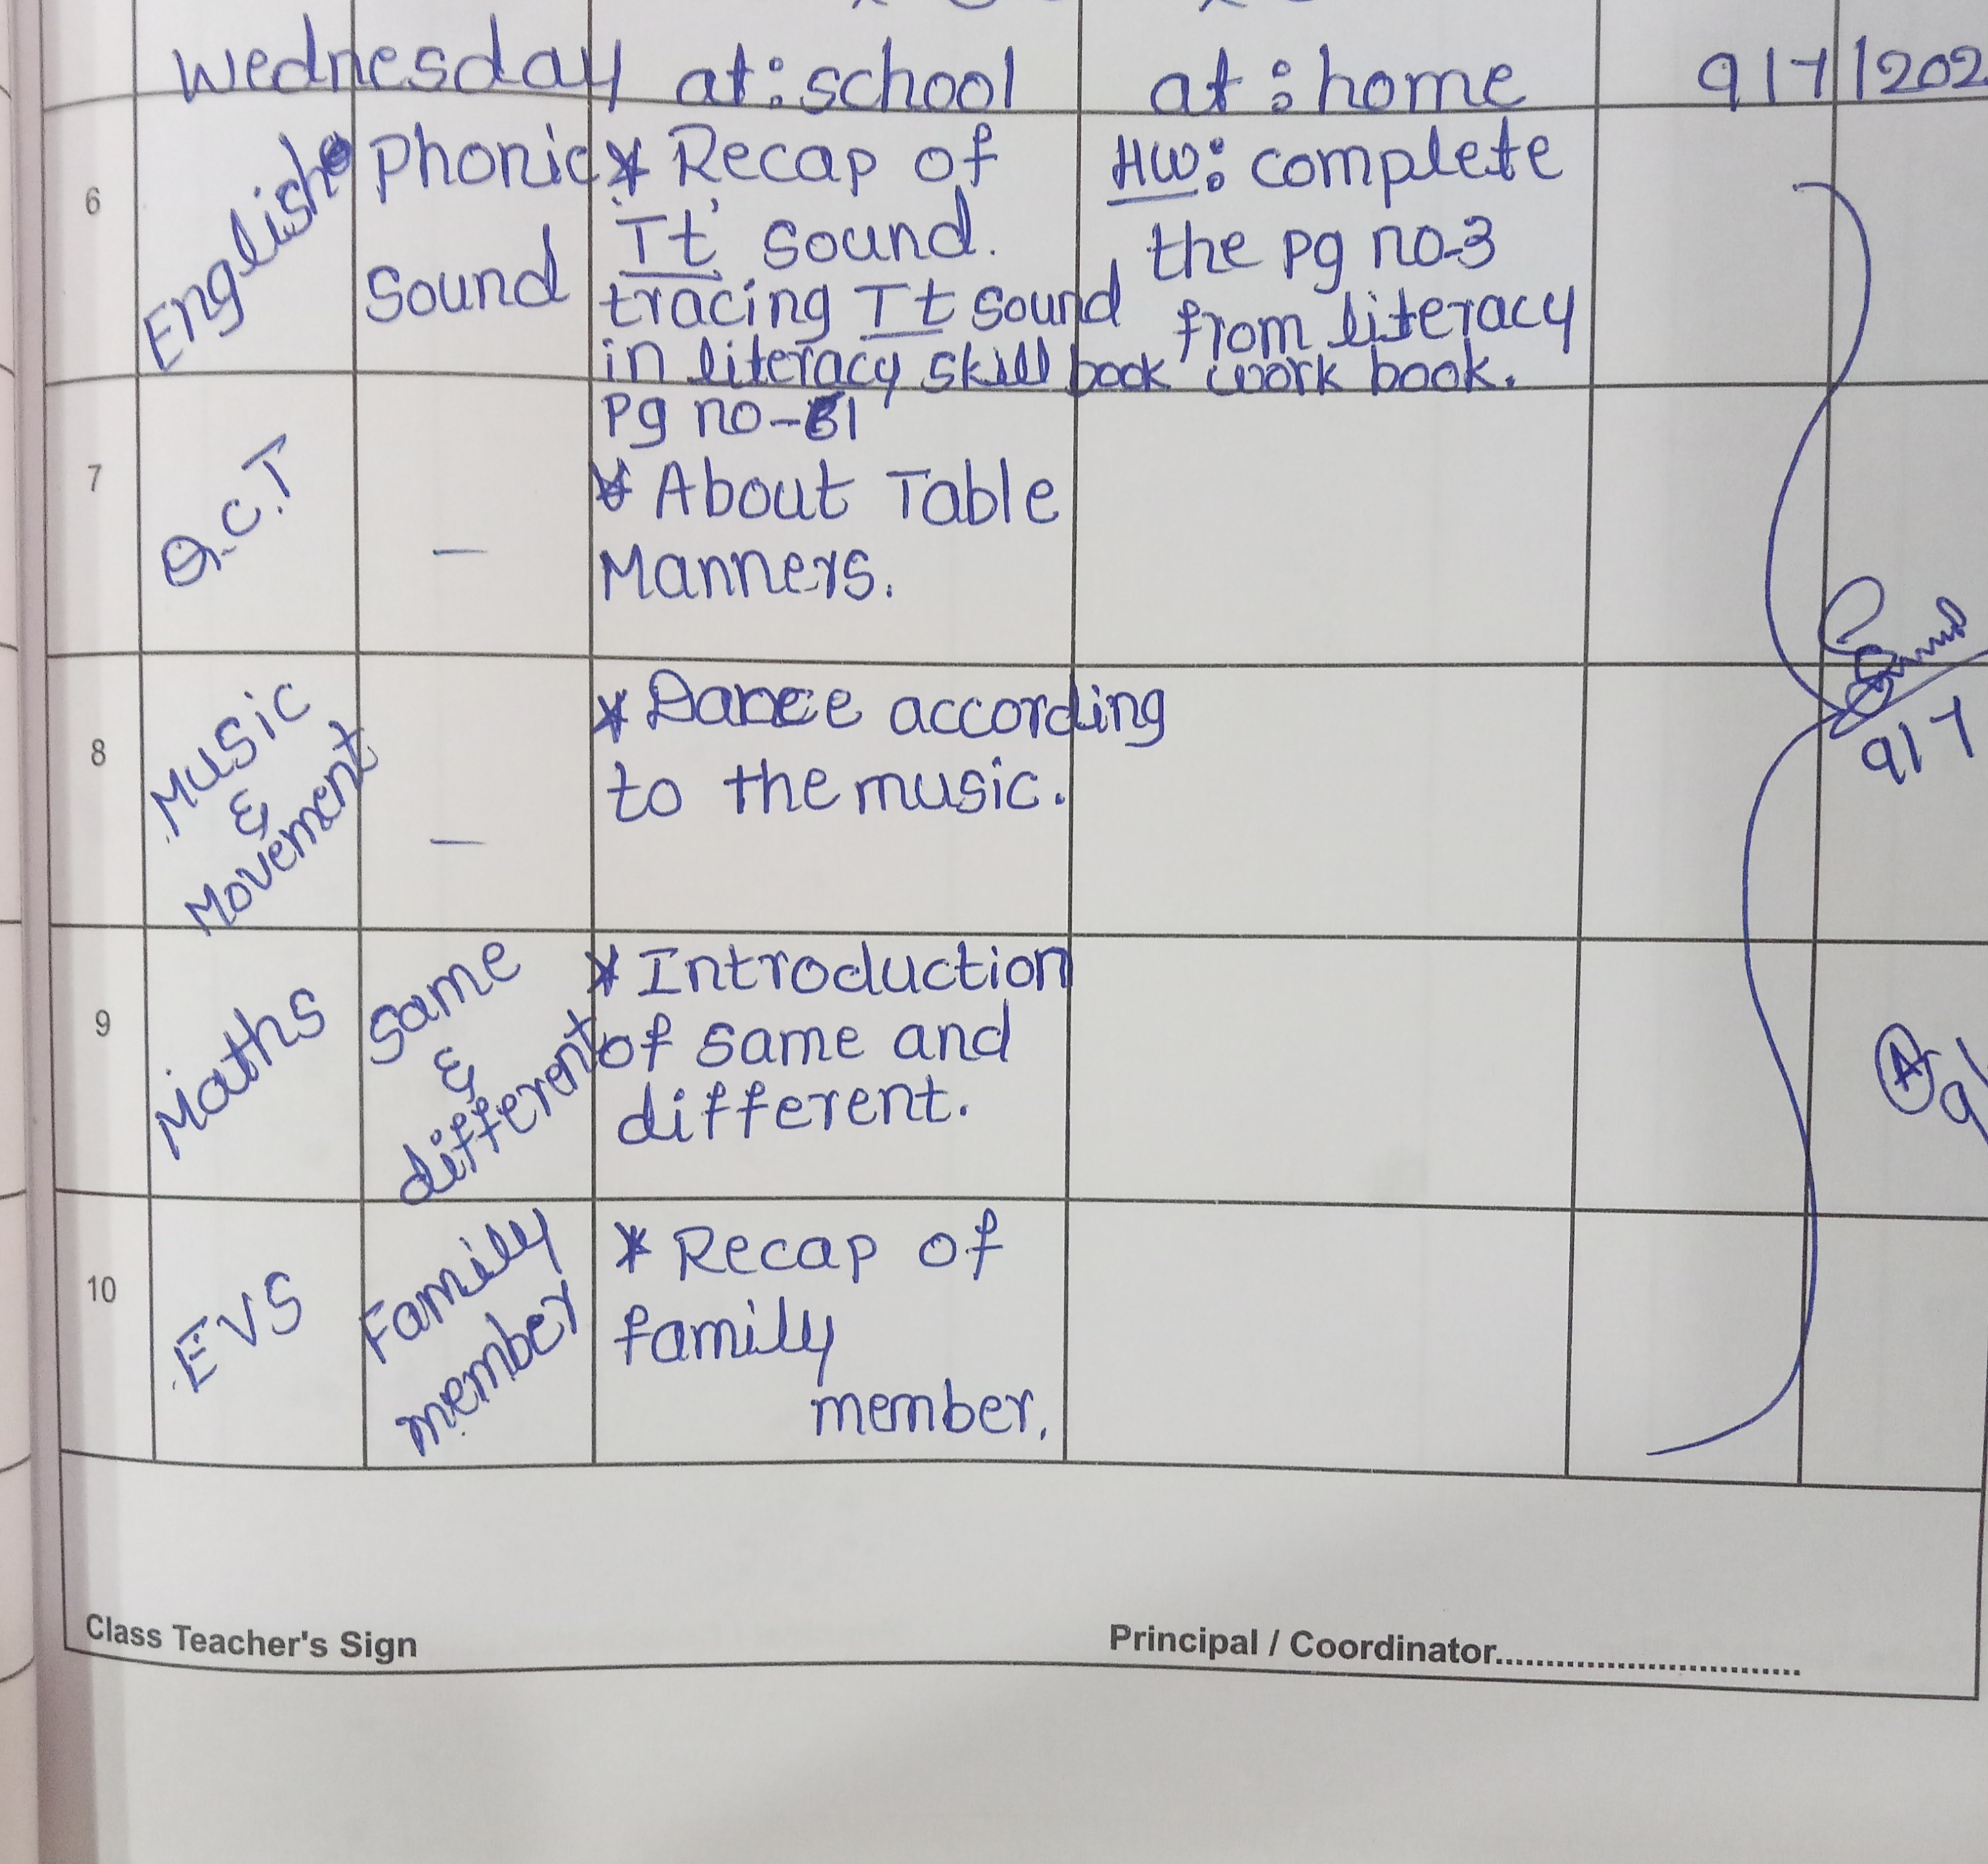 Wednesday at: school at: home 9/7/202
6 English Phonic Sound
* Recap of
'Tt' sound.
tracing Tt sound
in literacy skill book
Pg no-
HW: complete
the pg no-3
from literacy
work book.
7 Q.C.T —
* About Table
Manners.
8 Music
&
Movement —
* Dance according
to the music.
9/7
9 Maths
Same
&
different
* Introduction
of same and
different.
10 EVS
Family
member
* Recap of
family
member.
Class Teacher's Sign
Principal / Coordinator..............................